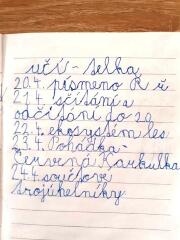 učí-telka
20.4. písmeno R ř
21.4. sčítání a
odčítání do 20
22.4. ekosystém les
23.4. Pohádka-
Červená Karkulka
24.4. součtové
trojúhelníky